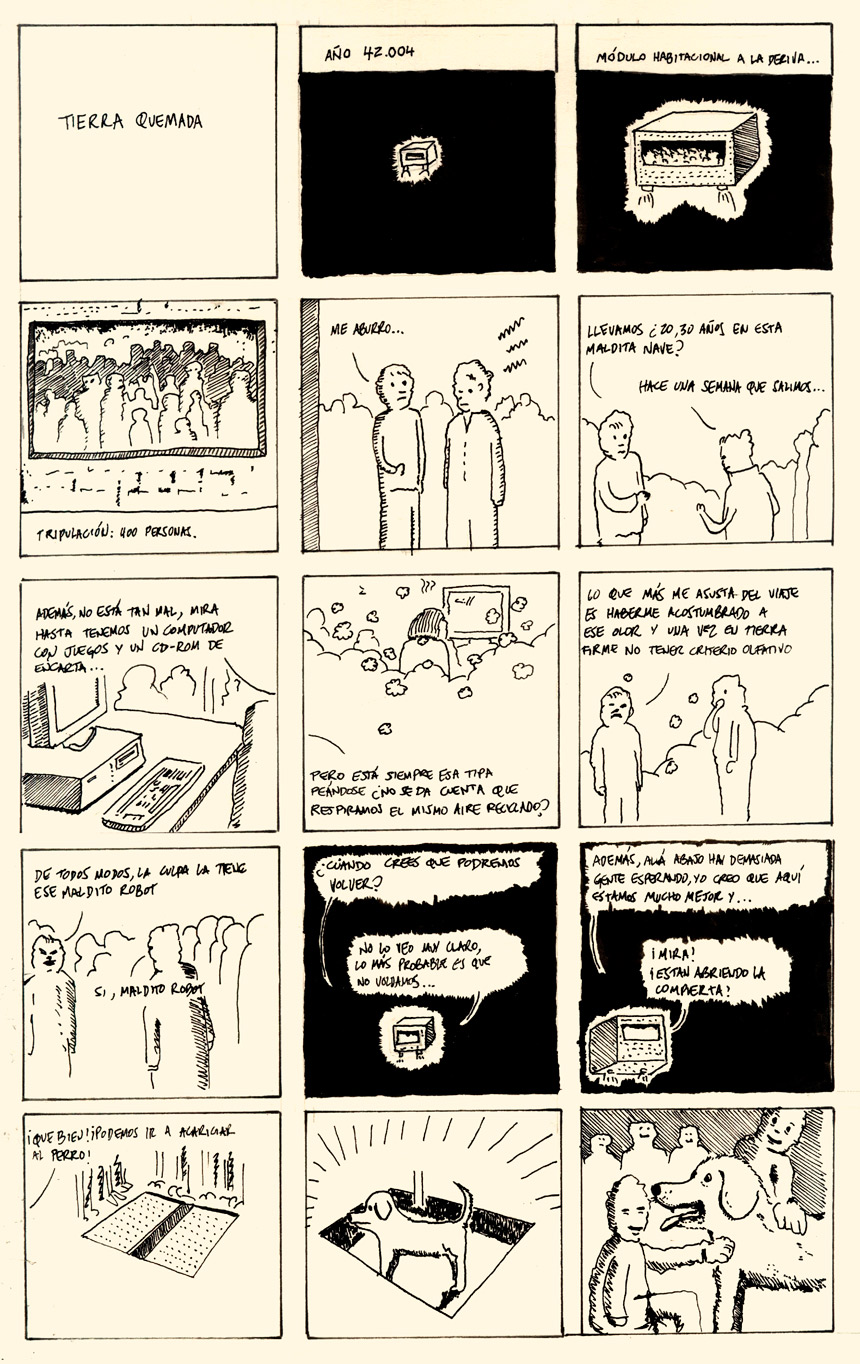 TIERRA QUEMADA
AÑO 42.004
MÓDULO HABITACIONAL A LA DERIVA...
TRIPULACIÓN: 400 PERSONAS.
ME ABURRO...
LLEVAMOS ¿20,30 AÑOS EN ESTA
MALDITA NAVE?
HACE UNA SEMANA QUE SALIMOS...
ADEMÁS, NO ESTÁ TAN MAL, MIRA
HASTA TENEMOS UN COMPUTADOR
CON JUEGOS Y UN CD-ROM DE
ENCARTA...
PERO ESTÁ SIEMPRE ESA TIPA
PEÁNDOSE ¿NO SE DA CUENTA QUE
RESPIRAMOS EL MISMO AIRE RECICLADO?
LO QUE MÁS ME ASUSTA DEL VIAJE
ES HABERME ACOSTUMBRADO A
ESE OLOR Y UNA VEZ EN TIERRA
FIRME NO TENER CRITERIO OLFATIVO
DE TODOS MODOS, LA CULPA LA TIENE
ESE MALDITO ROBOT
SI, MALDITO ROBOT
¿CUÁNDO CREES QUE PODREMOS
VOLVER?
NO LO VEO MUY CLARO,
LO MÁS PROBABLE ES QUE
NO VOLVAMOS...
ADEMÁS, ALLÁ ABAJO HAY DEMASIADA
GENTE ESPERANDO, YO CREO QUE AQUÍ
ESTAMOS MUCHO MEJOR Y...
¡MIRA!
¡ESTAN ABRIENDO LA
COMPUERTA!
¡QUE BIEN! ¡PODEMOS IR A ACARICIAR
AL PERRO!